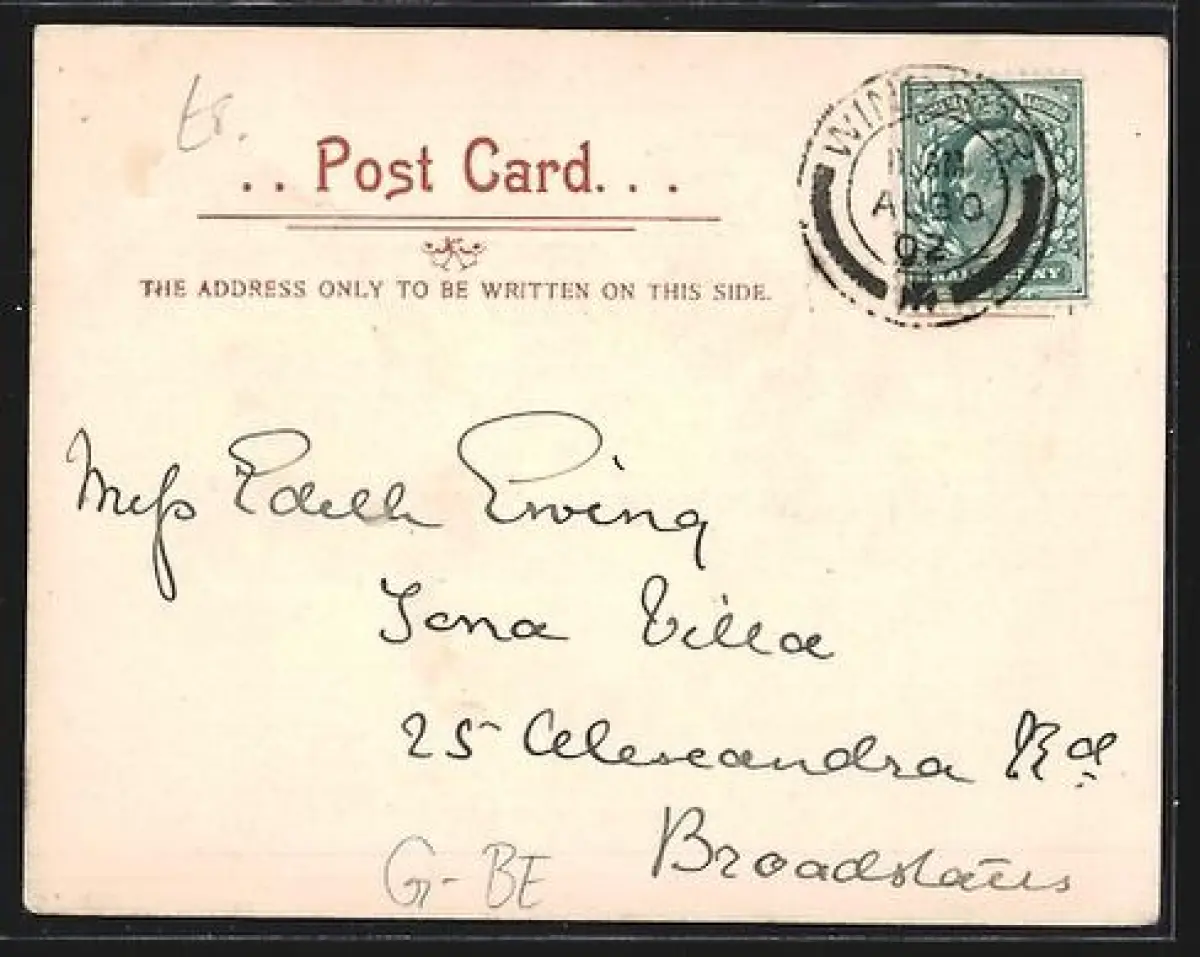 Et.
. . Post Card. . .
THE ADDRESS ONLY TO BE WRITTEN ON THIS SIDE.
AM
AU 30
02
Miss Edith Ewing
Iona Villa
25 Alexandra Rd.
Broadstairs
G-BE